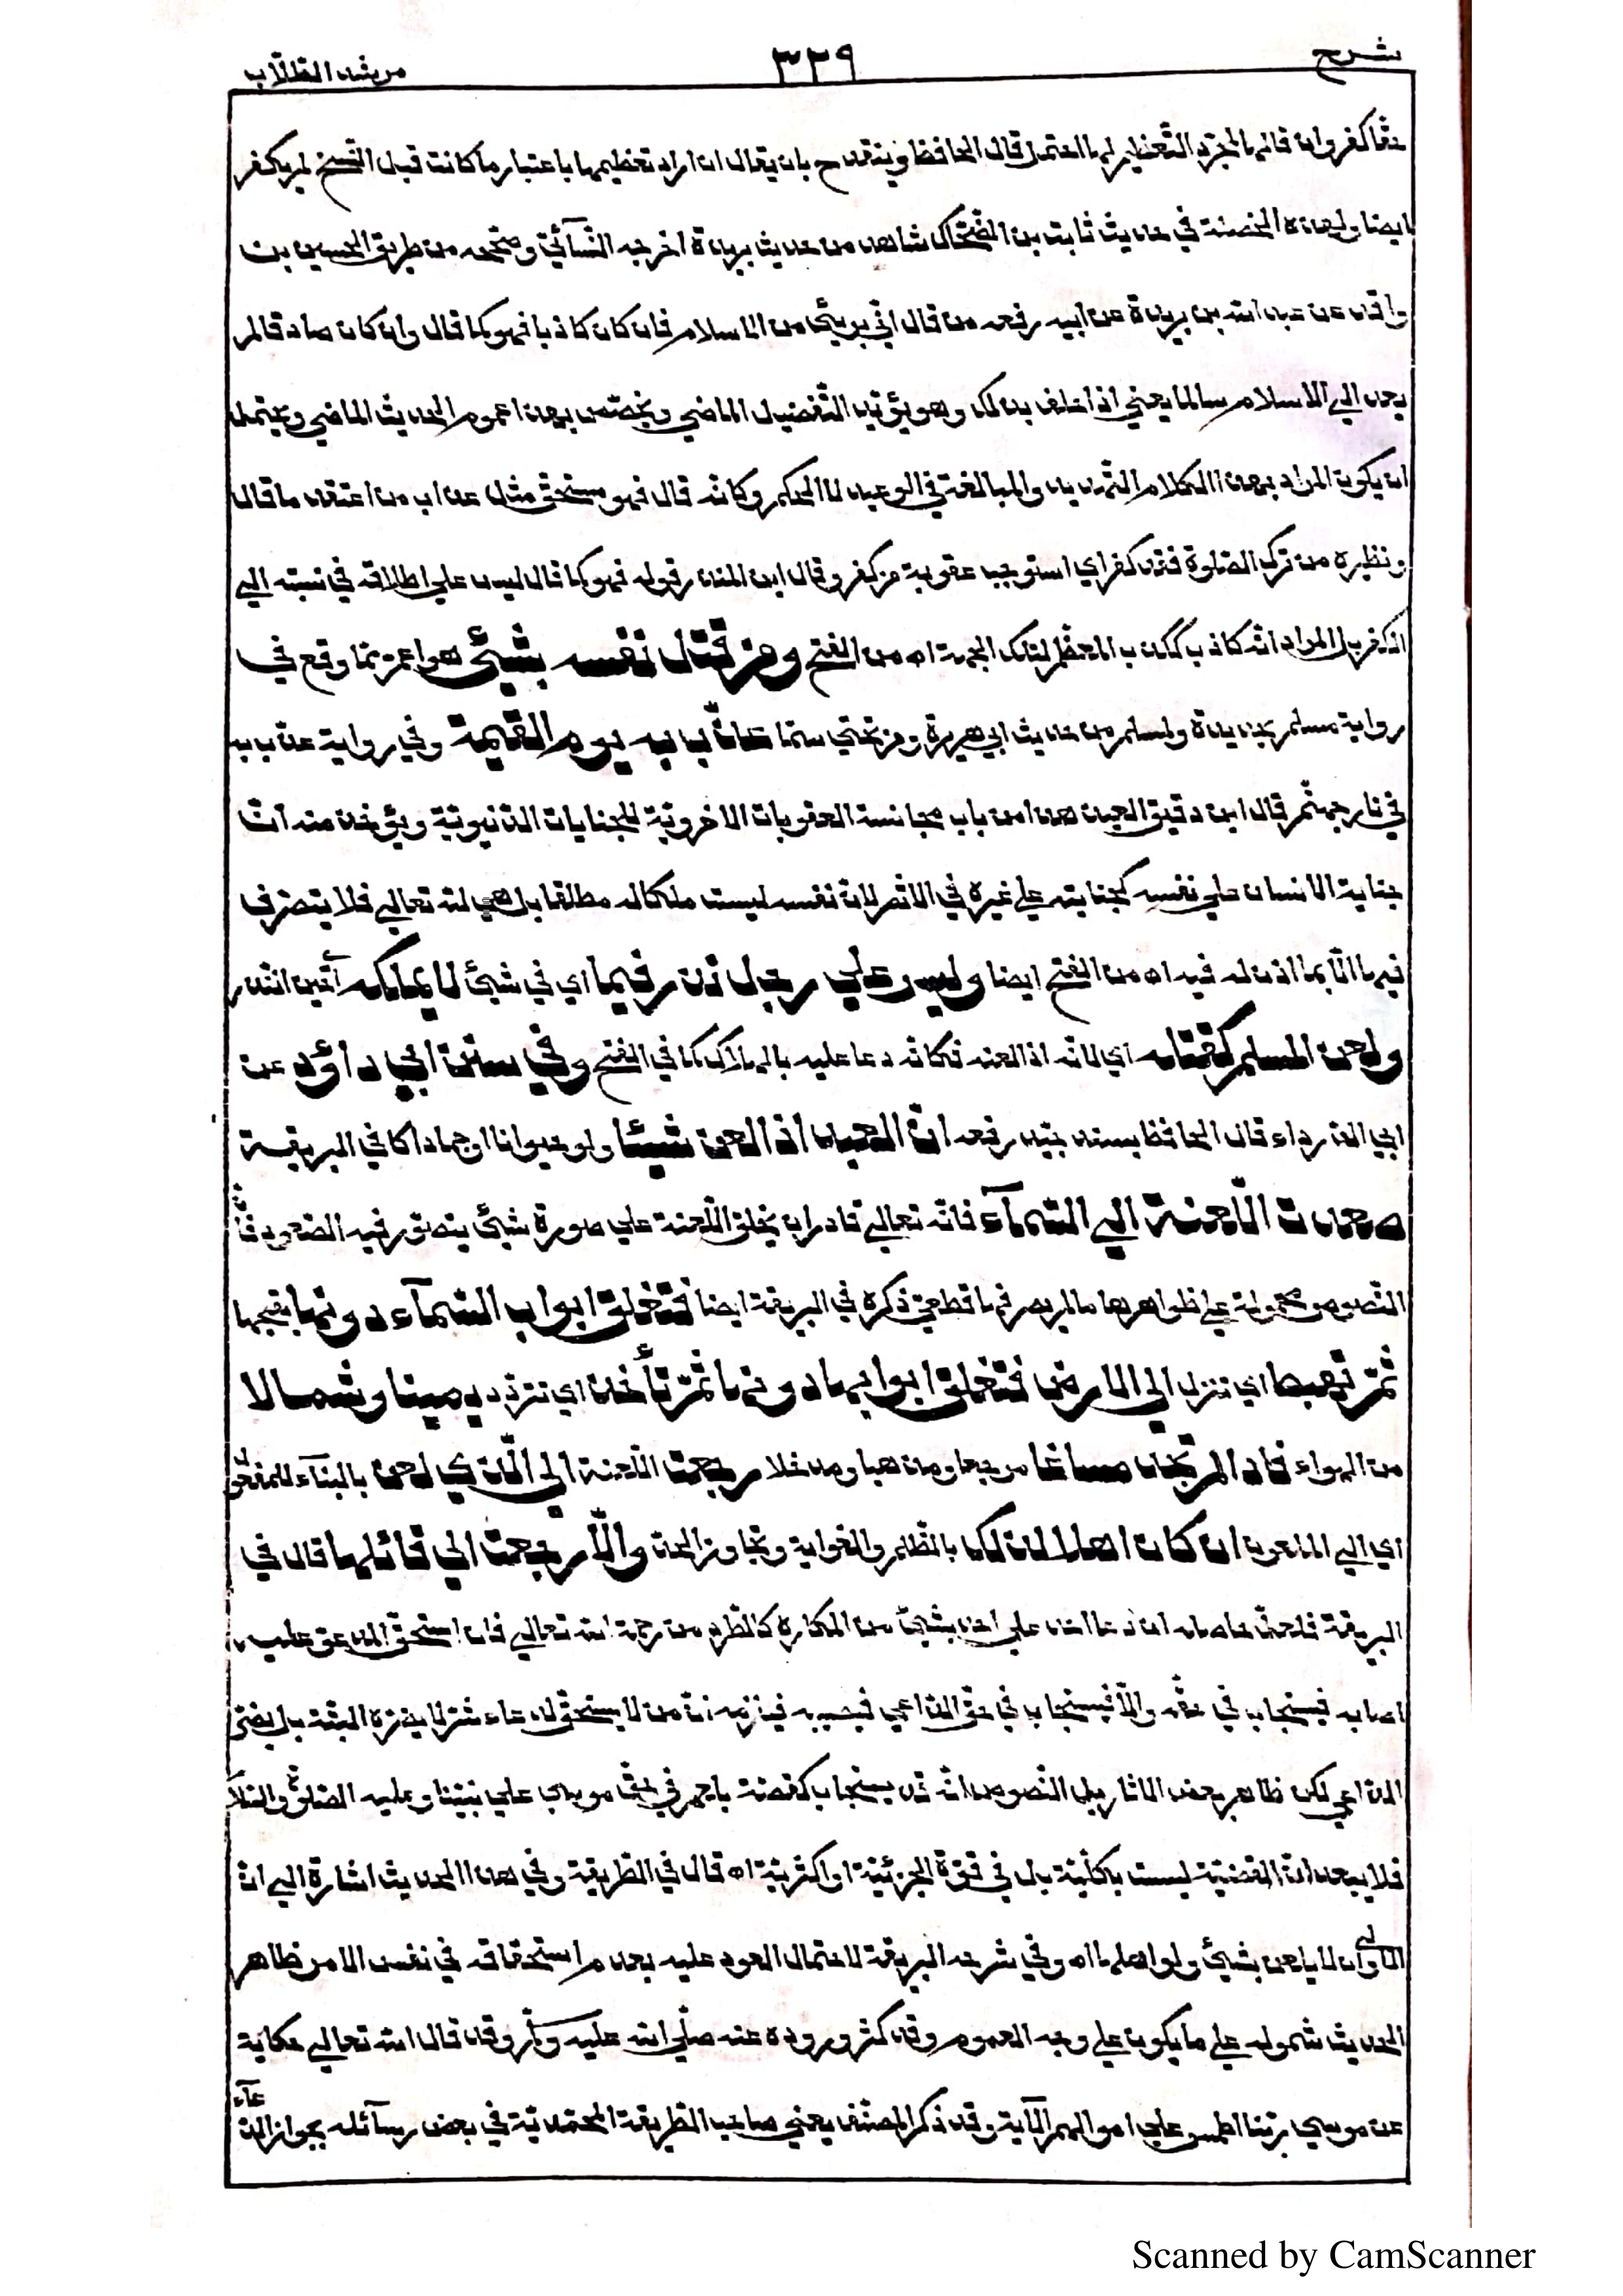 شرح ٣٢٩ مرشد الطلّاب
حقّا كفر وان قالها لمجرّد التّعظيم لها احتمل قال الحافظ وينقدح بان يقال ان اراد تعظيمها باعتبار ما كانت قبل النّسخ لم يكفر
ايضا ولهذه الخصلة في حديث ثابت بن الضّحّاك شاهد من حديث بريدة اخرجه النّسآئيّ وصحّحه من طريق الحسين بن
واقد عن عبد اللّه بن بريدة عن ابيه رفعه من قال انّي بريئ من الاسلام فان كان كاذبا فهو كما قال وان كان صادقا لم
يعد الي الاسلام سالما يعني اذا حلف بذلك وهو يؤيّد التّفصيل الماضي ويخصّص بهذا عموم الحديث الماضي ويحتمل
ان يكون المراد بهذا الكلام التّهديد والمبالغة في الوعيد لا الحكم وكانّه قال فهو مستحقّ مثل عذاب من اعتقد ما قال
ونظيره من ترك الصّلوة فقد كفر اي استوجب عقوبة من كفر وقال ابن المنذر قوله فهو كما قال ليس علي اطلاقه في نسبته الي
الكفر بل المراد انّه كاذب ككذب المعظّم لتلك الجهة اه من الفتح ومن قتل نفسه بشيئ هو اعمّ ممّا وقع في
رواية مسلم بحديدة ولمسلم من حديث ابي هريرة ومن تحسّي سمّا عذّب به يوم القيمة وفي رواية عذّب به
في نار جهنّم قال ابن دقيق العيد هذا من باب مجانسة العقوبات الاخرويّة للجنايات الدّنيويّة ويؤخذ منه انّ
جناية الانسان علي نفسه كجنايته علي غيره في الاثم لانّ نفسه ليست ملكا له مطلقا بل هي للّه تعالي فلا يتصرّف
فيها الّا بما اذن له فيه اه من الفتح ايضا وليس علي رجل نذر فيما اي في شيئ لا يملكه اي من النّذر
ولعن المسلم كقتله اي لانّه اذا لعنه فكانّه دعا عليه بالهلاك كما في الفتح وفي سنن ابي دأؤد عن
ابي الدّرداء قال الحافظ بسند جيّد رفعه انّ العبد اذا لعن شيئا ولو حيوانا او جمادا كما في البريقة
صعدت اللّعنة الي السّمآء فانّه تعالي قادر ان يخلق اللّعنة علي صورة شيئ يتصوّر فيه الصّعود فانّ
النّصوص محمولة علي ظواهرها ما لم يصرفها قطعيّ ذكره في البريقة ايضا فتغلق ابواب السّمآء دونها لقبحها
ثمّ تهبط اي تنزل الي الارض فتغلق ابوابها دونها ثمّ تأخذ اي تتردّد يمينا وشمالا
من الهواء فاذا لم تجد مساغا مرجعا ومذهبا ومدخلا رجعت اللّعنة الي الّذي لعن بالبنآء للمفعول
اي الي الملعون ان كان اهلا لذلك بالظّلم والغواية وتجاوز الحدّ والّا رجعت الي قائلها قال في
البريقة فلعلّ حاصله ان دعا احد علي احد بشيئ من المكاره كالطّرد من رحمة اللّه تعالي فان استحقّ المدعوّ عليه
اصابه فيستجاب في حقّه والّا فيستجاب في حقّ الدّاعي فيصيبه فيلزم انّ من لا يستحقّ لدعاء شرّ لا يضرّه البتّة بل يضرّ
الدّاعي لكن ظاهر بعض الاثار بل النّصوص انّه قد يستجاب كقصّة بلعم في حقّ موسي علي نبيّنا وعليه الصّلوة والسّلام
فلا يبعد انّ القضيّة ليست بكلّيّة بل في قوّة الجزئيّة او اكثريّة اه قال في الطّريقة وفي هذا الحديث اشارة الي انّ
الاولي ان لا يلعن بشيئ ولو اهلها اه وفي شرحه البريقة لاحتمال العود عليه بعدم استحقاقه في نفس الامر ظاهر
الحديث شموله علي ما يكون علي وجه العموم وقد كثر وروده عنه صلّي اللّه عليه وسلّم وقد قال اللّه تعالي حكاية
عن موسي ربّنا اطمس علي اموالهم الآية وقد ذكر المصنّف يعني صاحب الطّريقة المحمّديّة في بعض رسآئله بجواز الدّعآء
Scanned by CamScanner